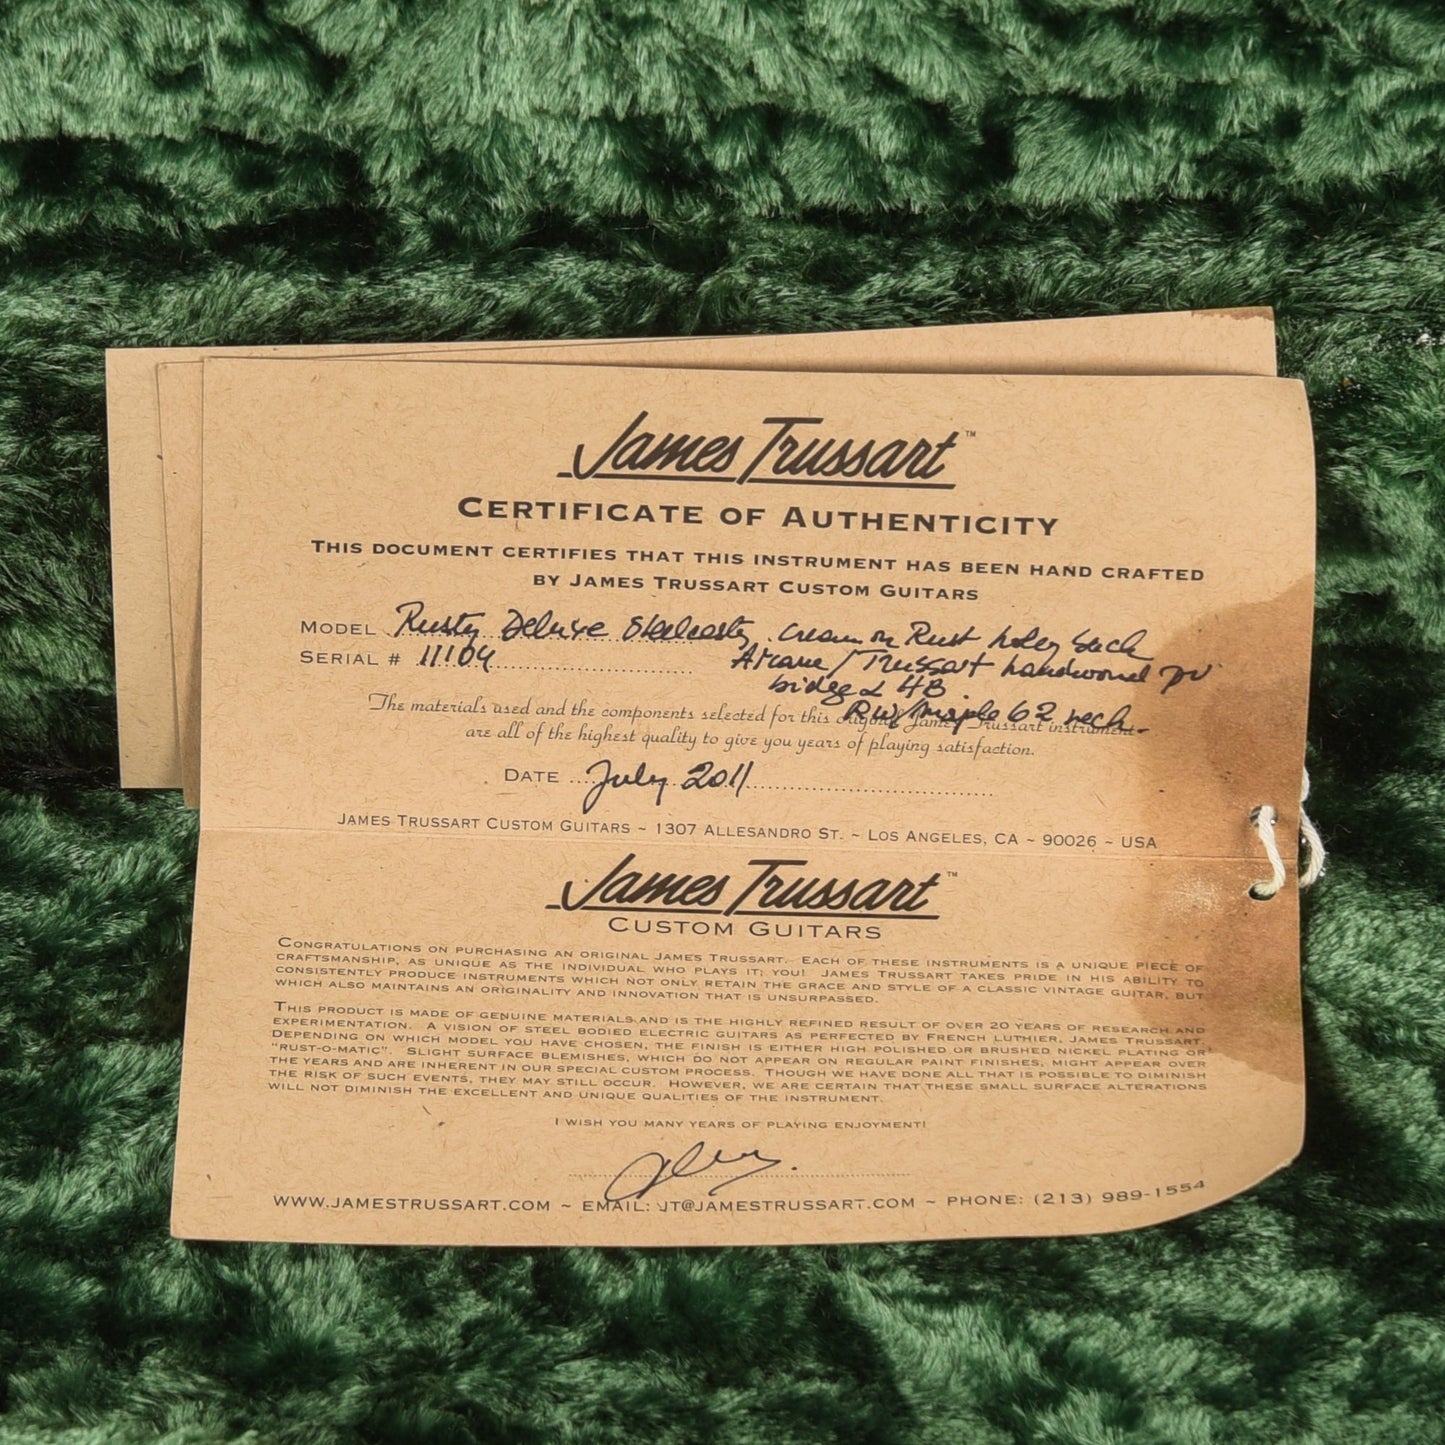 James Trussart™
CERTIFICATE OF AUTHENTICITY
THIS DOCUMENT CERTIFIES THAT THIS INSTRUMENT HAS BEEN HAND CRAFTED
BY JAMES TRUSSART CUSTOM GUITARS
MODEL Rusty Deluxe Steelcaster, cream on Rust holey back
SERIAL # 11104 Arcane/Trussart handwound pu
bidge & 4B
RW/Maple 62 neck.
The materials used and the components selected for this original James Trussart instrument
are all of the highest quality to give you years of playing satisfaction.
DATE July 2011
JAMES TRUSSART CUSTOM GUITARS ~ 1307 ALLESANDRO ST. ~ LOS ANGELES, CA ~ 90026 ~ USA
James Trussart™
CUSTOM GUITARS
CONGRATULATIONS ON PURCHASING AN ORIGINAL JAMES TRUSSART. EACH OF THESE INSTRUMENTS IS A UNIQUE PIECE OF
CRAFTSMANSHIP, AS UNIQUE AS THE INDIVIDUAL WHO PLAYS IT; YOU! JAMES TRUSSART TAKES PRIDE IN HIS ABILITY TO
CONSISTENTLY PRODUCE INSTRUMENTS WHICH NOT ONLY RETAIN THE GRACE AND STYLE OF A CLASSIC VINTAGE GUITAR, BUT
WHICH ALSO MAINTAINS AN ORIGINALITY AND INNOVATION THAT IS UNSURPASSED.
THIS PRODUCT IS MADE OF GENUINE MATERIALS AND IS THE HIGHLY REFINED RESULT OF OVER 20 YEARS OF RESEARCH AND
EXPERIMENTATION. A VISION OF STEEL BODIED ELECTRIC GUITARS AS PERFECTED BY FRENCH LUTHIER, JAMES TRUSSART.
DEPENDING ON WHICH MODEL YOU HAVE CHOSEN, THE FINISH IS EITHER HIGH POLISHED OR BRUSHED NICKEL PLATING OR
"RUST-O-MATIC". SLIGHT SURFACE BLEMISHES, WHICH DO NOT APPEAR ON REGULAR PAINT FINISHES, MIGHT APPEAR OVER
THE YEARS AND ARE INHERENT IN OUR SPECIAL CUSTOM PROCESS. THOUGH WE HAVE DONE ALL THAT IS POSSIBLE TO DIMINISH
THE RISK OF SUCH EVENTS, THEY MAY STILL OCCUR. HOWEVER, WE ARE CERTAIN THAT THESE SMALL SURFACE ALTERATIONS
WILL NOT DIMINISH THE EXCELLENT AND UNIQUE QUALITIES OF THE INSTRUMENT.
I WISH YOU MANY YEARS OF PLAYING ENJOYMENT!
WWW.JAMESTRUSSART.COM ~ EMAIL: JT@JAMESTRUSSART.COM ~ PHONE: (213) 989-1554